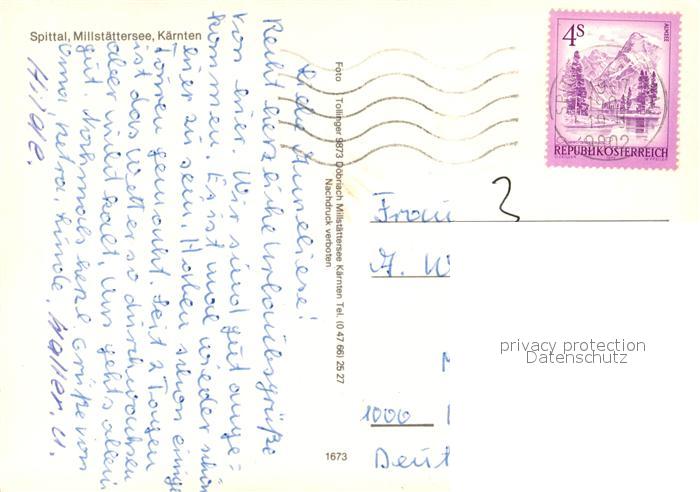 Spittal, Millstättersee, Kärnten
Liebe Anneliese!
Recht herzliche Urlaubsgrüße
von hier. Wir sind gut ange=
kommen. Es ist mal wieder schön
hier zu sein. Haben schon einige
Touren gemacht. Seit 2 Tagen
ist das Wetter so durchwachsen
aber nicht kalt. Uns gehts allen
gut. Nochmals herzl. Grüße von
Oma, Petra, Linde, Walter, u.
Hilde.
Foto Tollinger 9873 Döbriach Millstättersee Kärnten Tel. (0 47 66) 25 27
Nachdruck verboten
1673
4S
ALMSEE
REPUBLIK ÖSTERREICH
9802
Frau
A. W
1000
Deut
privacy protection
Datenschutz